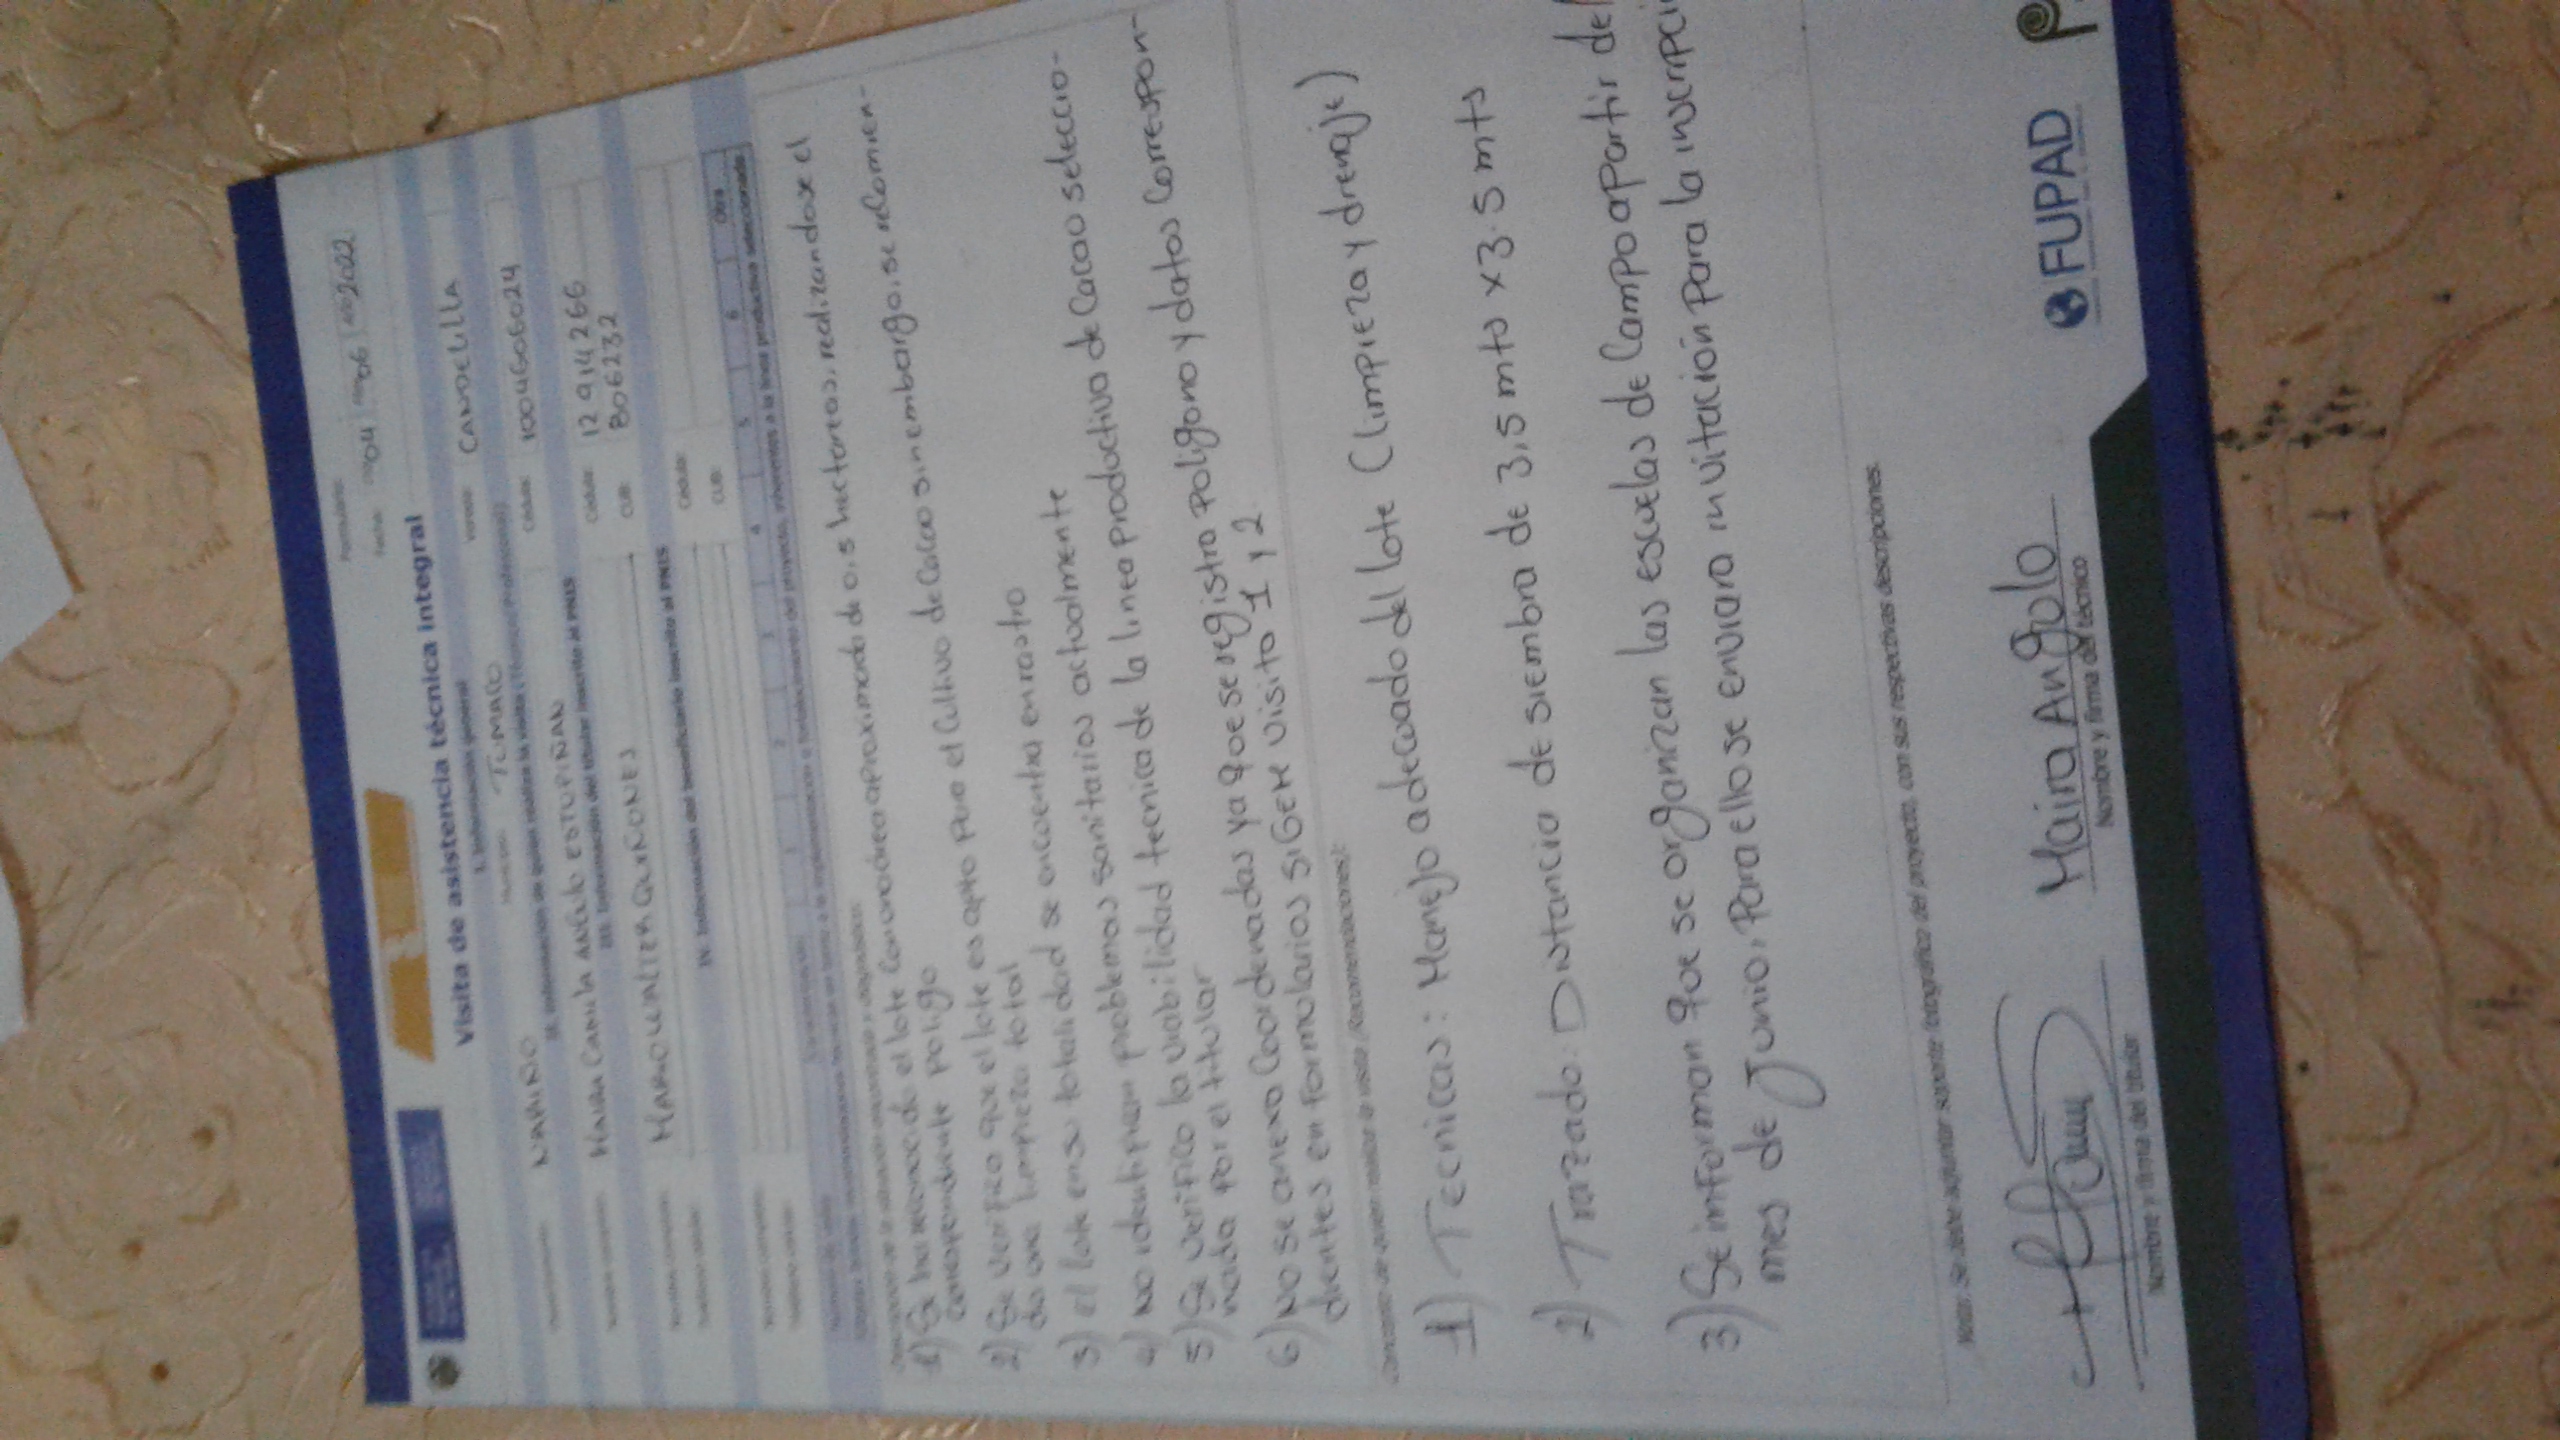 Visita de asistencia técnica integral
Fecha: 04 06 2022
I. Información general
NARIÑO Municipio: TUMACO Vereda: CANDELILLA
II. Información de quien realiza la visita
MAIRA CAMILA ANGULO ESTUPIÑAN Cédula: 1004606024
III. Información del titular inscrito al PNIS
MARIO WALTER QUIÑONES Cédula: 12 914 266
CUB: 806232
IV. Información del beneficiario inscrito al PNIS
Cédula:
CUB:
1 2 3 4 5 6 Otra
1) Se ha reconocido el lote con una área aproximada de 0.5 hectareas, realizandose el
correspondiente poligo
2) Se verifico que el lote es apto para el cultivo de cacao sin embargo, se recomien-
da una limpieza total
3) el lote en su totalidad se encuentra en rastro
4) No identifican problemas sanitarios actualmente
5) Se verifico la viabilidad tecnica de la linea productiva de cacao seleccio-
nada por el titular
6) No se anexa coordenadas ya que se registra poligono y datos correspon-
dientes en formularios SIGEH visita 1 y 2
Concepto de quien realiza la visita (Recomendaciones):
1) Tecnicas: Manejo adecuado del lote (limpieza y drenaje)
2) Trazado: Distancia de siembra de 3,5 mts x 3.5 mts
3) Se informan que se organizan las escuelas de campo apartir del
mes de Junio, Para ello se enviara invitación para la inscripci
Nota: Se debe adjuntar soporte fotográfico del proyecto, con sus respectivas descripciones.
Maira Angulo
Nombre y firma del titular Nombre y firma del técnico
FUPAD